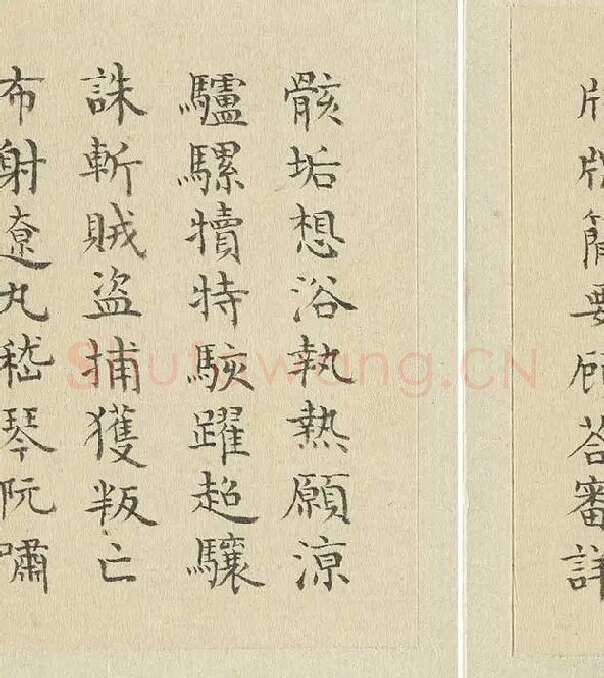 簡要顧荅審詳
骸垢想浴執熱願涼
驢騾犢特駭躍超驤
誅斬賊盜捕獲叛亡
布射遼丸嵇琴阮嘯
Shufawang.CN